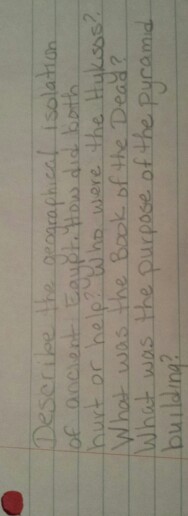 Describe the geographical isolation
of ancient Egypt. How did both
hurt or help? Who were the Hyksos?
What was the Book of the Dead?
What was the purpose of the pyramid
building?